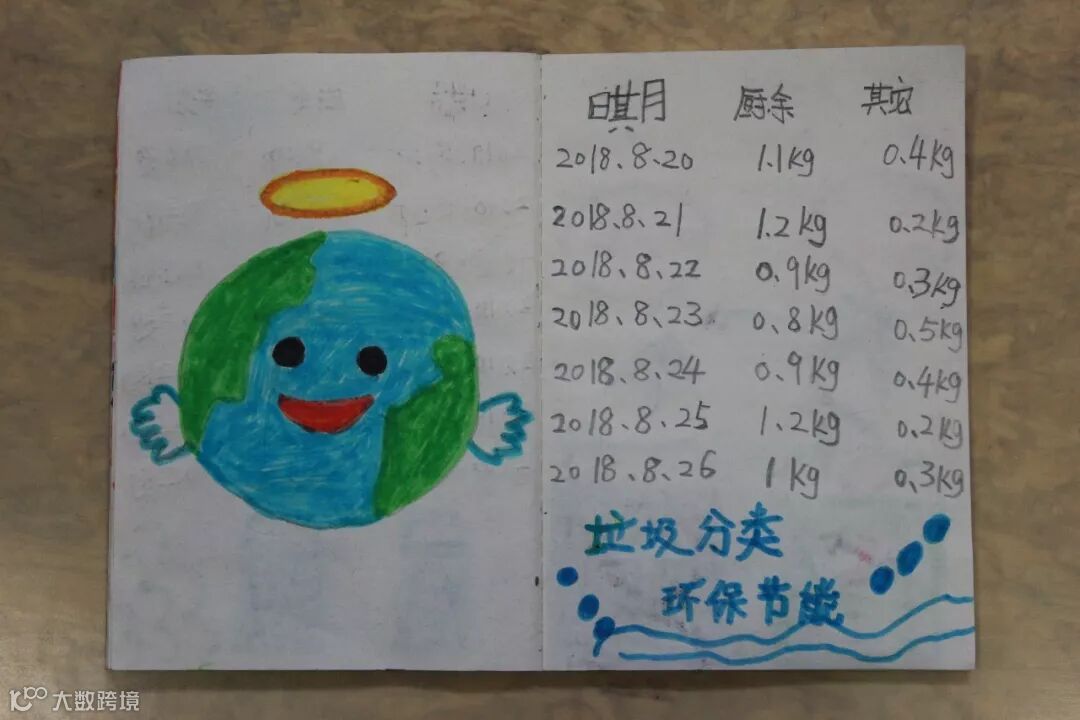 日期 厨余 其它
2018.8.20 1.1kg 0.4kg
2018.8.21 1.2kg 0.2kg
2018、8、22 0.9kg 0.3kg
2018、8、23 0.8kg 0.5kg
2018.8.24 0.9kg 0.4kg
2018.8.25 1.2kg 0.2kg
2018.8.26 1kg 0.3kg
垃圾分类
环保节能
大数跨境